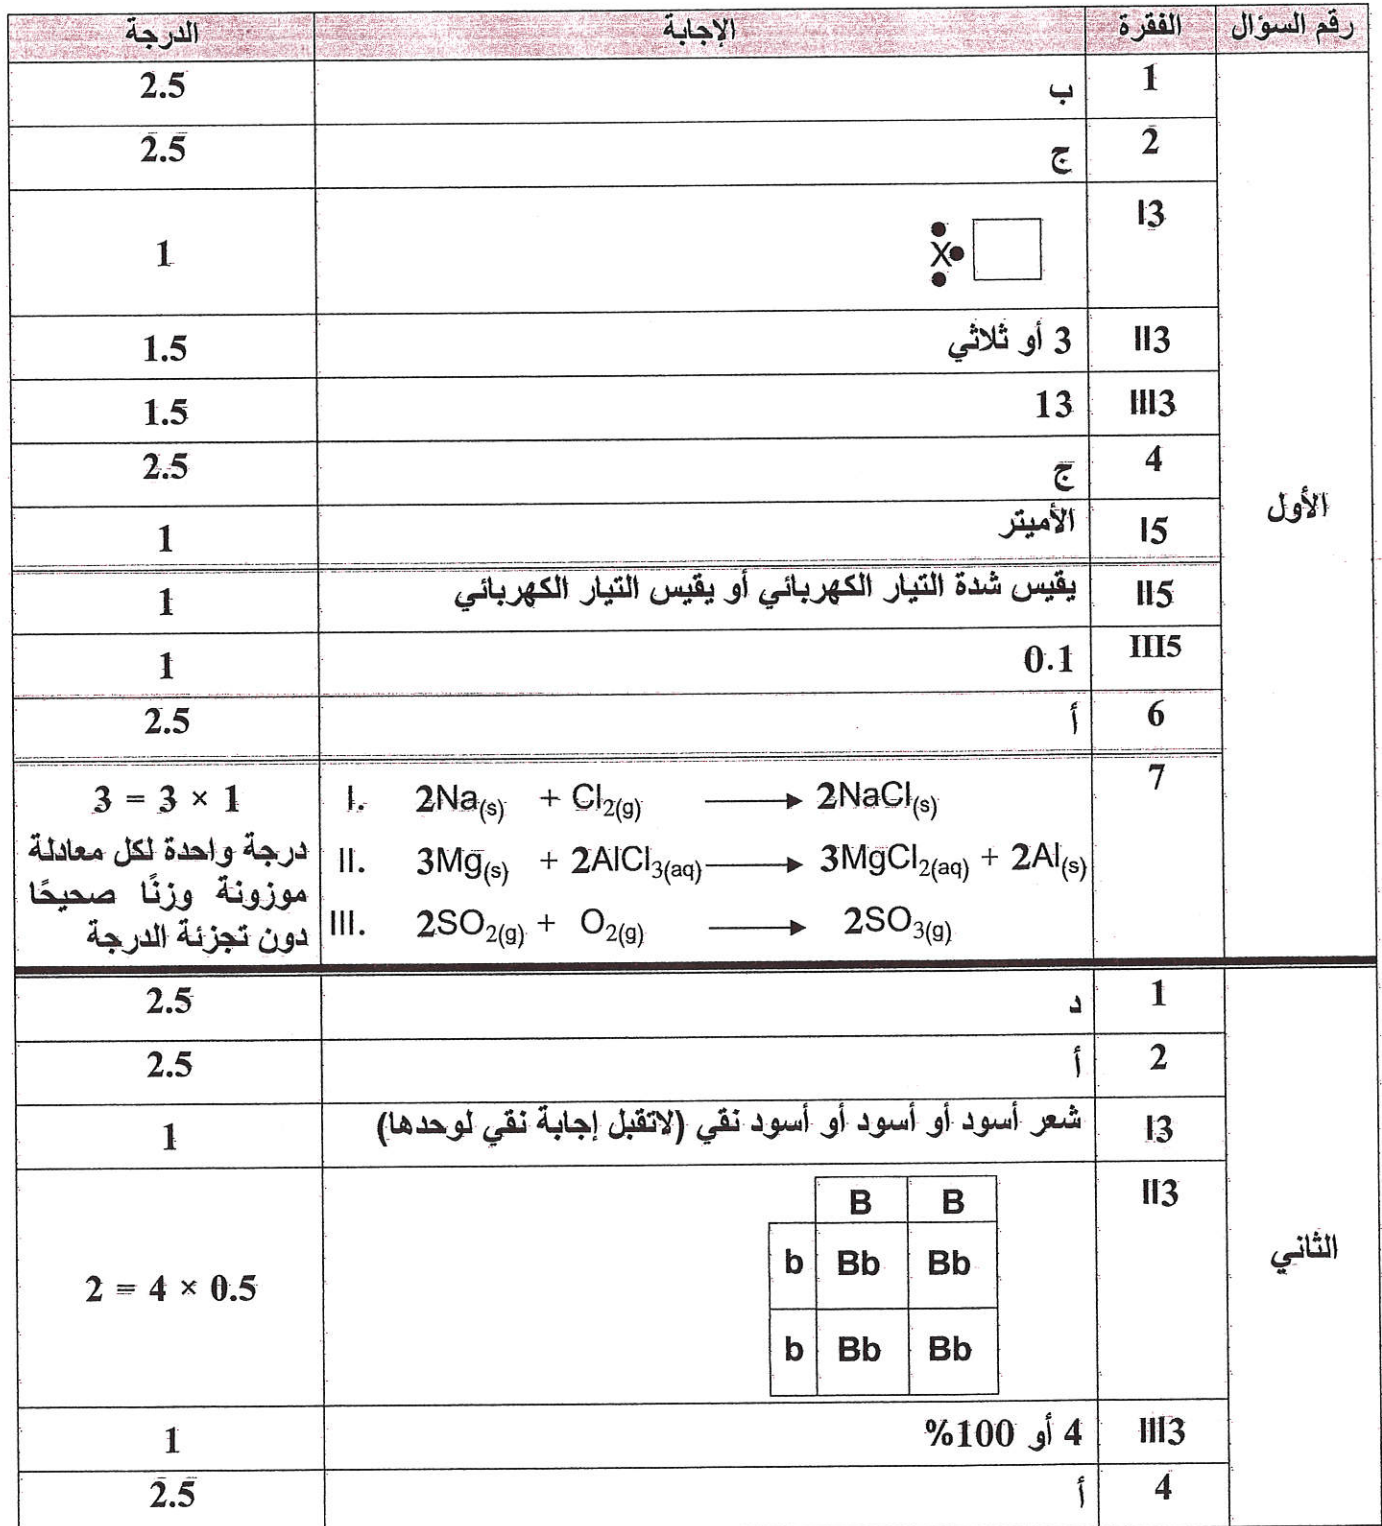 رقم السؤال الفقرة الإجابة الدرجة
الأول
1 ب 2.5
2 ج 2.5
I3 X 1
II3 3 أو ثلاثي 1.5
III3 13 1.5
4 ج 2.5
I5 الأميتر 1
II5 يقيس شدة التيار الكهربائي أو يقيس التيار الكهربائي 1
III5 0.1 1
6 أ 2.5
7
I. 2Na(s) + Cl2(g) ⟶ 2NaCl(s)
II. 3Mg(s) + 2AlCl3(aq) ⟶ 3MgCl2(aq) + 2Al(s)
III. 2SO2(g) + O2(g) ⟶ 2SO3(g)
3 = 3 × 1
درجة واحدة لكل معادلة
موزونة وزنًا صحيحًا
دون تجزئة الدرجة
الثاني
1 د 2.5
2 أ 2.5
I3 شعر أسود أو أسود أو أسود نقي (لاتقبل إجابة نقي لوحدها) 1
II3
B B
b Bb Bb
b Bb Bb
2 = 4 × 0.5
III3 4 أو 100% 1
4 أ 2.5